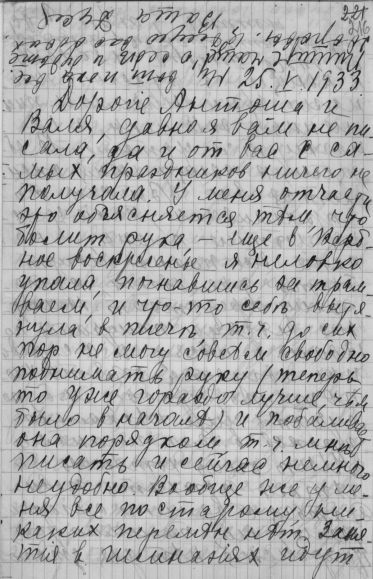 221
25. V. 1933
Дорогие Антоша и
Валя, давно я вам не пи-
сала, да и от вас с са-
мых праздников ничего не
получала. У меня отчасти
это объясняется тем, что
болит рука, – еще в Верб-
ное воскресенье я неловко
упала, погнавшись за трам-
ваем, и что-то себе вытя-
нула в плече, т.ч. до сих
пор не могу совсем свободно
поднимать руку (теперь
то уже гораздо лучше, чем
было в начале) и побаливает
она порядком, т.ч. мне
писать и сейчас немного
неудобно. Вообще же у ме-
ня все по старому, ни-
каких перемен нет. Заня-
тия в идут